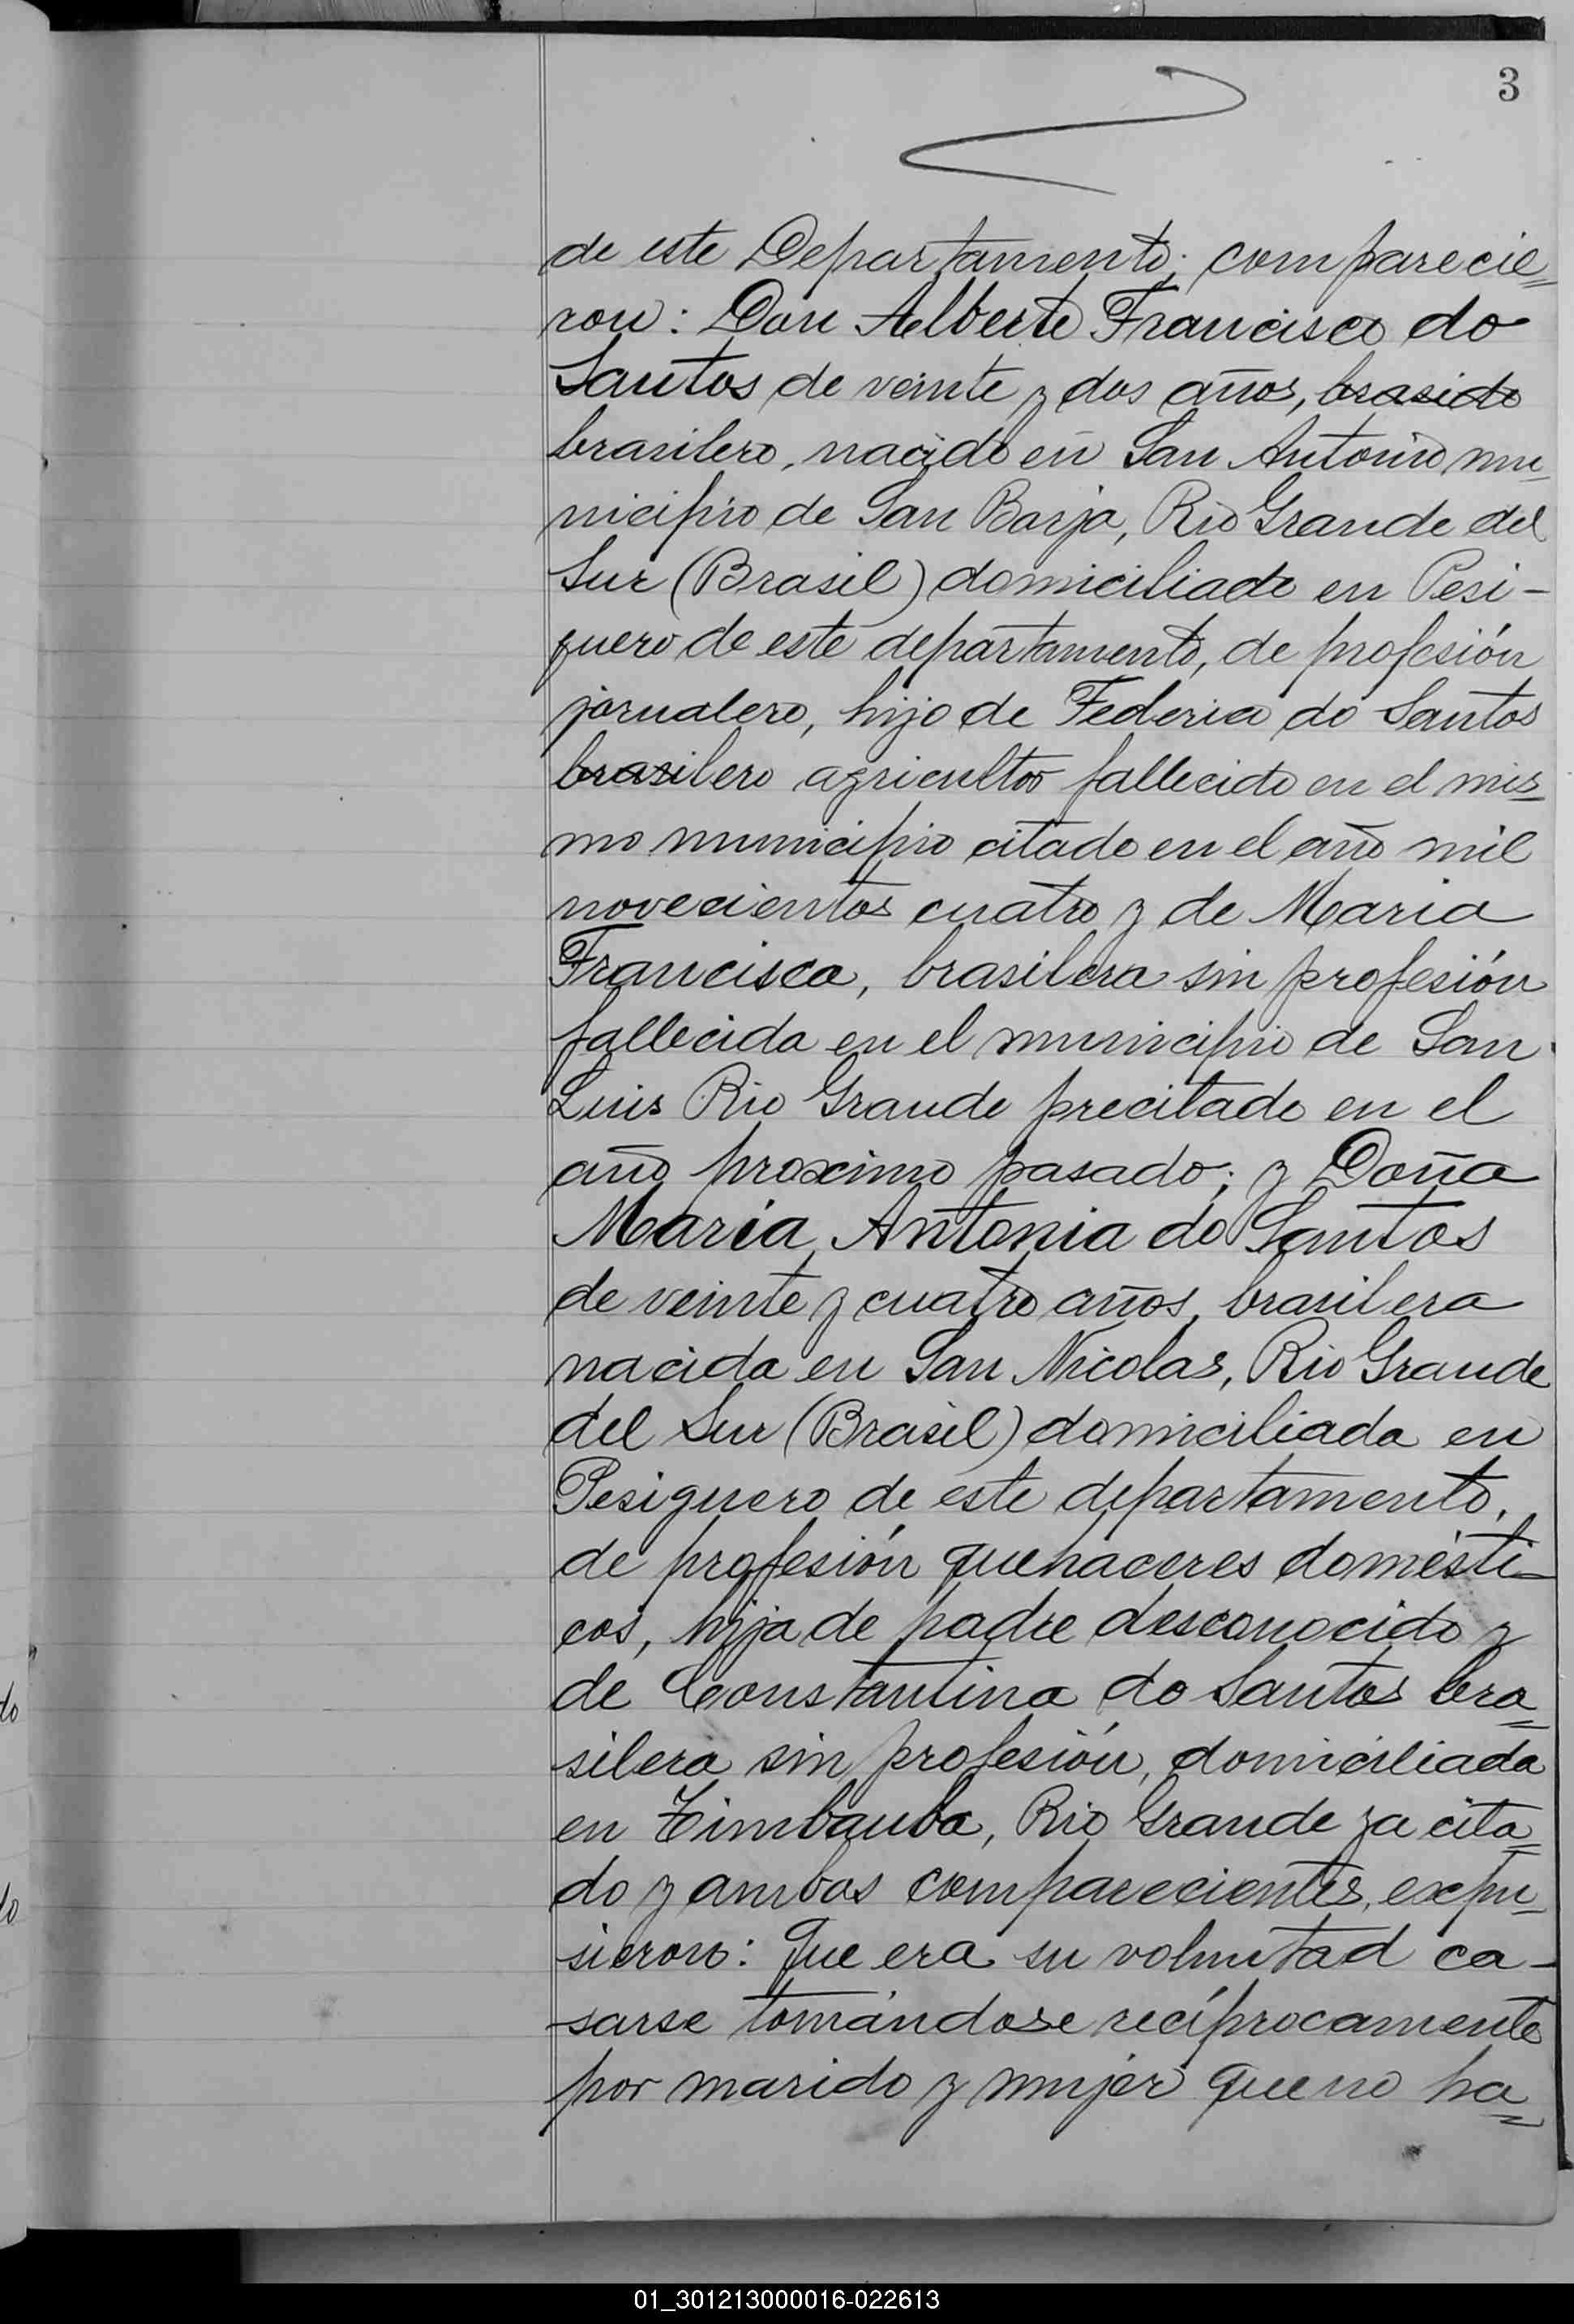 3
de este Departamento; comparecie=
ron: Don Alberto Francisco do
Santos de veinte y dos años, brasido
brasilero, nacido en San Antonio mu-
nicipio de San Borja, Rio Grande del
Sur (Brasil) domiciliado en Pesi-
guero de este departamento, de profesión
jornalero, hijo de Federico do Santos
brasilero agricultor fallecido en el mis-
mo municipio citado en el año mil
novecientos cuatro y de Maria
Francisca, brasilera sin profesión
fallecida en el municipio de San
Luis Rio Grande precitado en el
año proximo pasado; y Doña
María Antonia do Santos
de veinte y cuatro años, brasilera
nacida en San Nicolas, Rio Grande
del Sur (Brasil) domiciliada en
Pesiguero de este departamento,
de profesión quehaceres domésti-
cos, hija de padre desconocido y
de Constantina do Santos bra=
silera sin profesión, domiciliada
en Timbauba, Rio Grande ya cita=
do y ambos comparecientes, expu-
sieron: Que era su voluntad ca-
sarse tomándose recíprocamente
por marido y mujer que no ha=
do
do
01_301213000016-022613